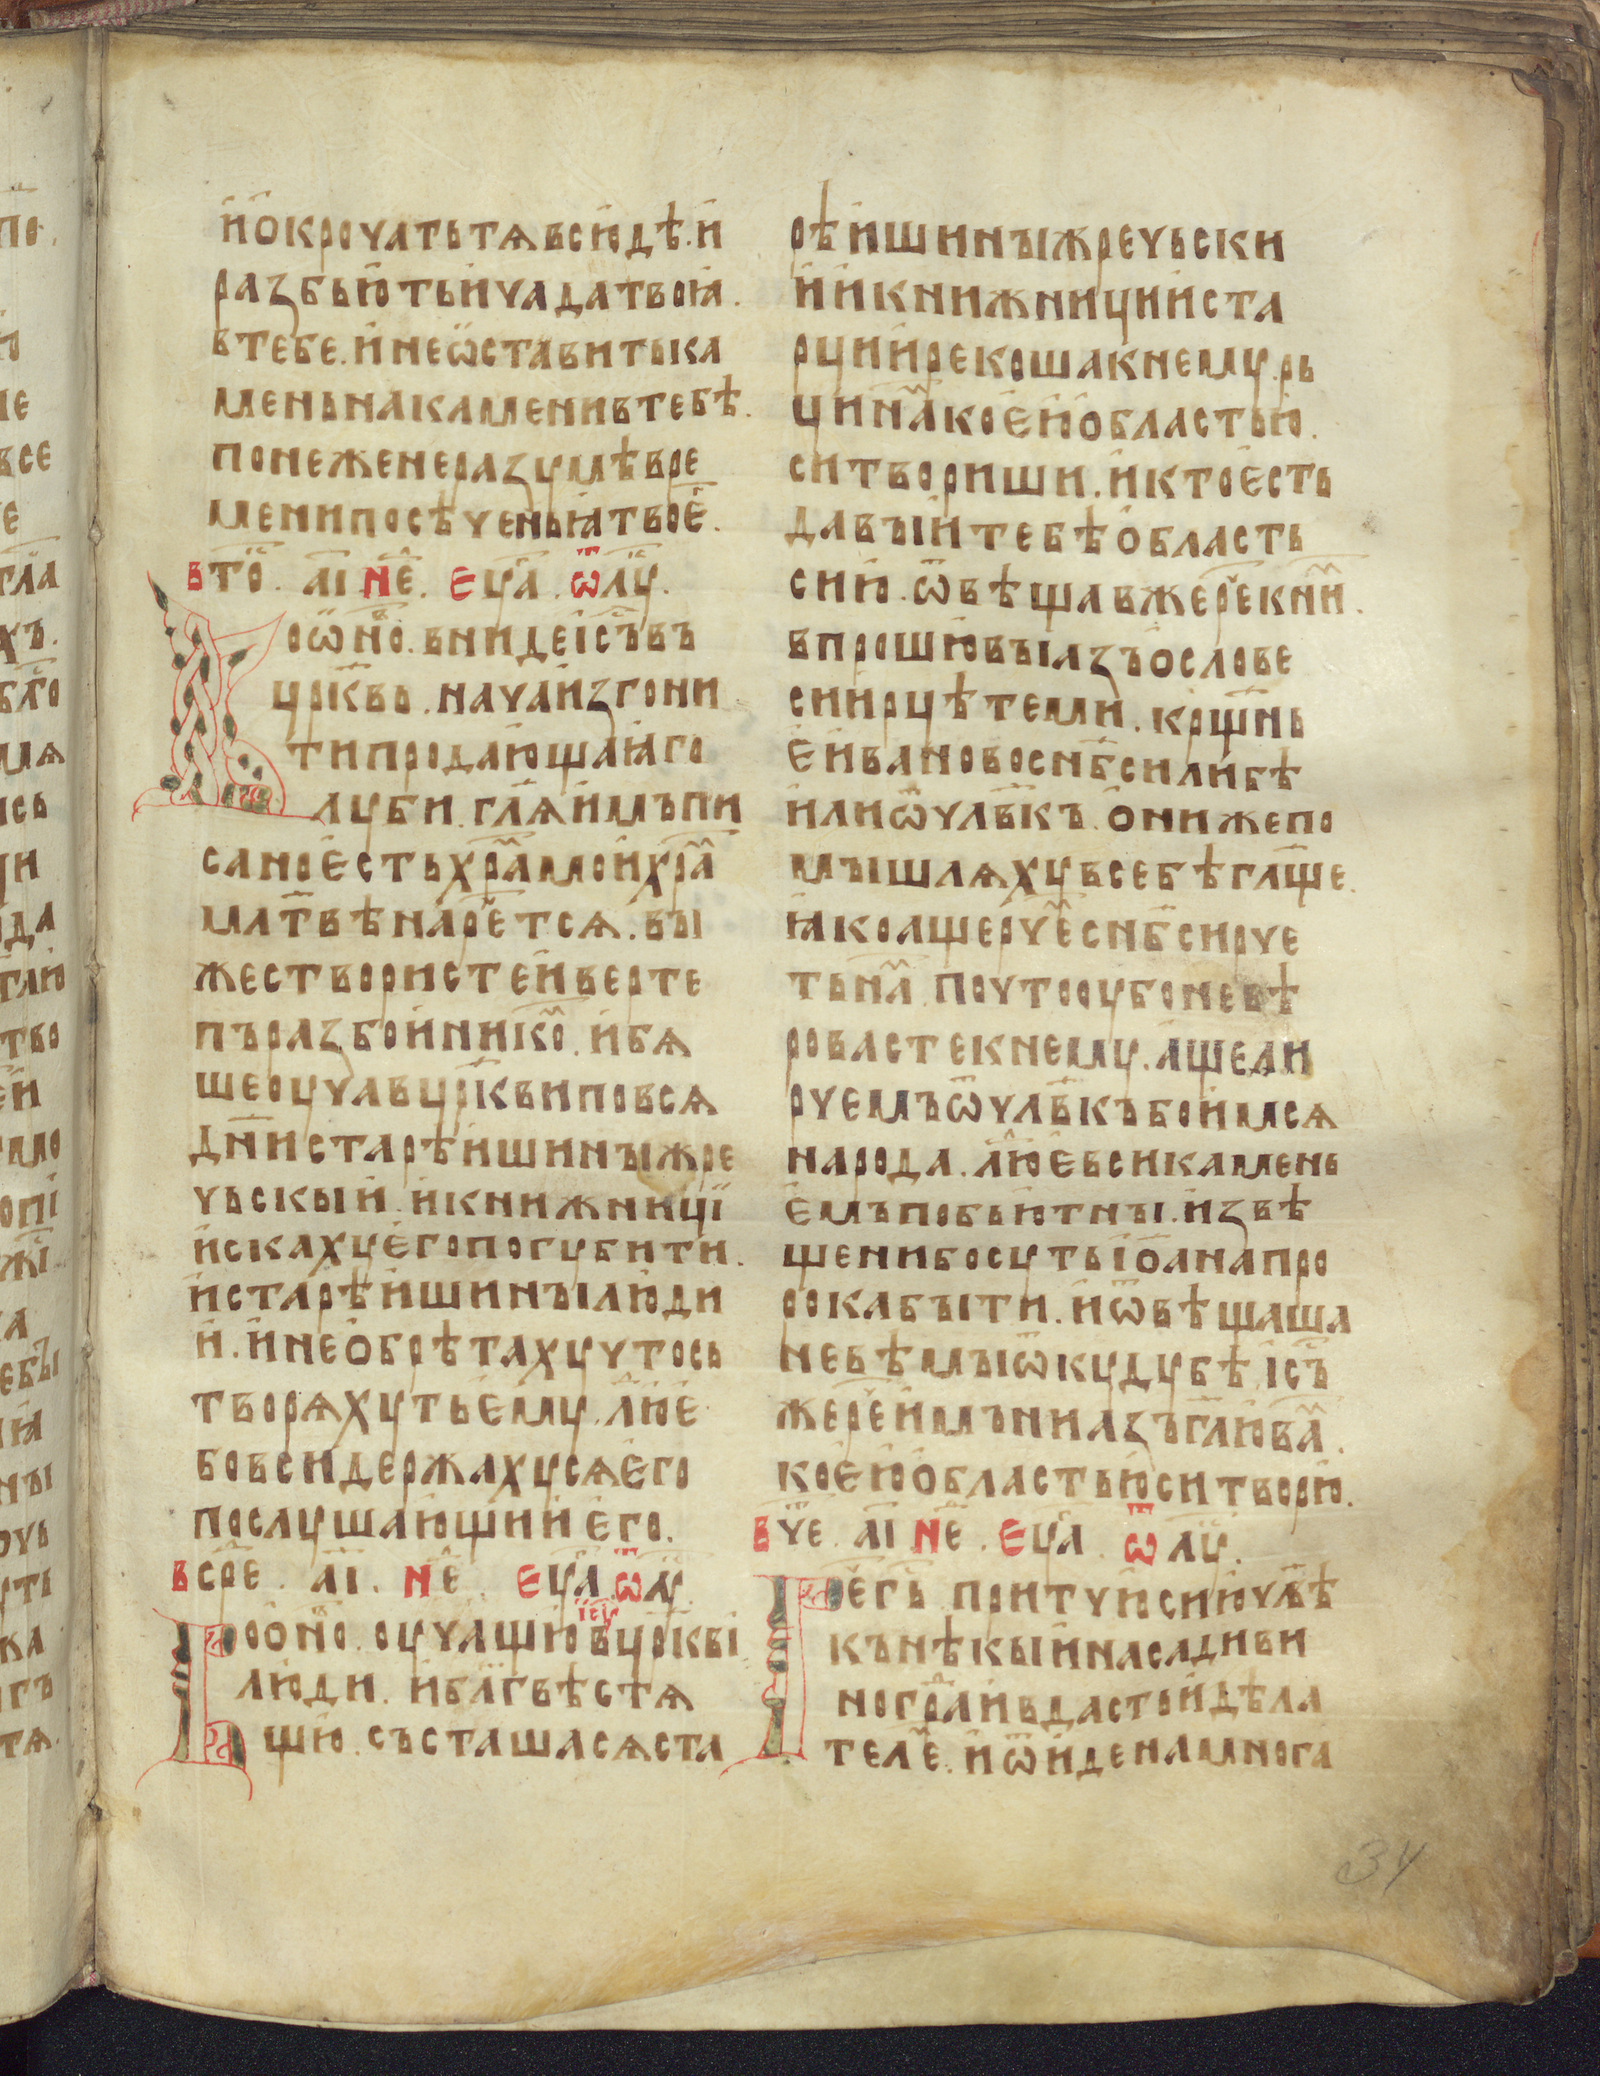 и҆ ѻ҆крочать тѧ всю̑дѣ. и҆
разбью҆ть и҆ чада твоꙗ҆.
в тебе. и҆ не ѡ҆ставить ка
мень на камени в тебѣ.
понеже не разꙋмѣ вре
мени посѣченьꙗ҆ твоє҆.
в то҇. а҃і не҇. єу҃а. ѿ лꙋ҇.
Во ѡ҆но҇. вниде і҆с҃ъ въ
цр҃квь. нача и҆згони
ти продающаꙗ҆ го
лꙋби. гл҃ѧ и҆мъ пи
сано є҆сть хра҇ мой хра҇
мл҃твѣ наре҇тсѧ. вы
же створисте й верте
пъ разбойнико҇. и҆ бѧ
ше ѹча в цр҃кви по всѧ
дн҃и старѣйшины жре
чьскыи҆. и҆ книжници
и҆скахꙋ є҆го погꙋбити.
и҆ старѣйшины люди
й. и҆ не ѻ҆брѣтахꙋ что сь
творѧхꙋть є҆мꙋ. лю҇є
бо вси держахꙋсѧ є҆го
послꙋшающий є҆го.
в сре҇. а҃і. не҇. єу҃а ѿ лꙋ҇.
Во ѻ҆но҇. ѹчащю і҆с҃ꙋ в цр҃кви
люди. и҆ бл҃гвѣстѧ
щю. състашасѧ ста
рѣйшины жречьски
й и҆ книжници и҆ ста
рци и҆ рекоша к немꙋ. рь
ци на҇ коє҆ю ѻ҆бластью҆.
си твориши. и҆ кто є҆сть
давый тебѣ ѻ҆бласть
сию. ѿвѣщав же ре҇ к ни҇.
впрошю вы і҆ азъ ѻ҆ слове
си и҆ рцѣте ми. крщ҃нь
є҆ и҆ваново с нб҃си ли бѣ
и҆ли ѿ чл҃вкъ. ѻ҆ни же по
мышлѧхꙋ в себѣ гл҃ще.
ꙗ҆ко аще рче҇ с нб҃си рче
ть на҇ по что ѹбо не вѣ
ровасте к немꙋ. аще ли
рчемъ ѿ чл҃вкъ боимсѧ
народа. лю҇є вси камень
є҆мъ побьют ны. и҆звѣ
щени бо сꙋть і҆ѻана про
рока быти. и҆ ѿвѣщаша
не вѣмы ѿкꙋдꙋ бѣ і҆с҃ъ
же ре҇ и҆мъ ни азъ гл҃ю ва҇.
коє҆ю ѻ҆бластью си творю.
в че҇. а҃і не҇. єу҃а. ѿ лꙋ҇.
Ре҇ г҃ь притчю сию чл҃вѣ
къ нѣкый насади ви
ногра҇ и҆ вдасть и҆ дѣла
теле҇. и҆ ѿиде на многа
34